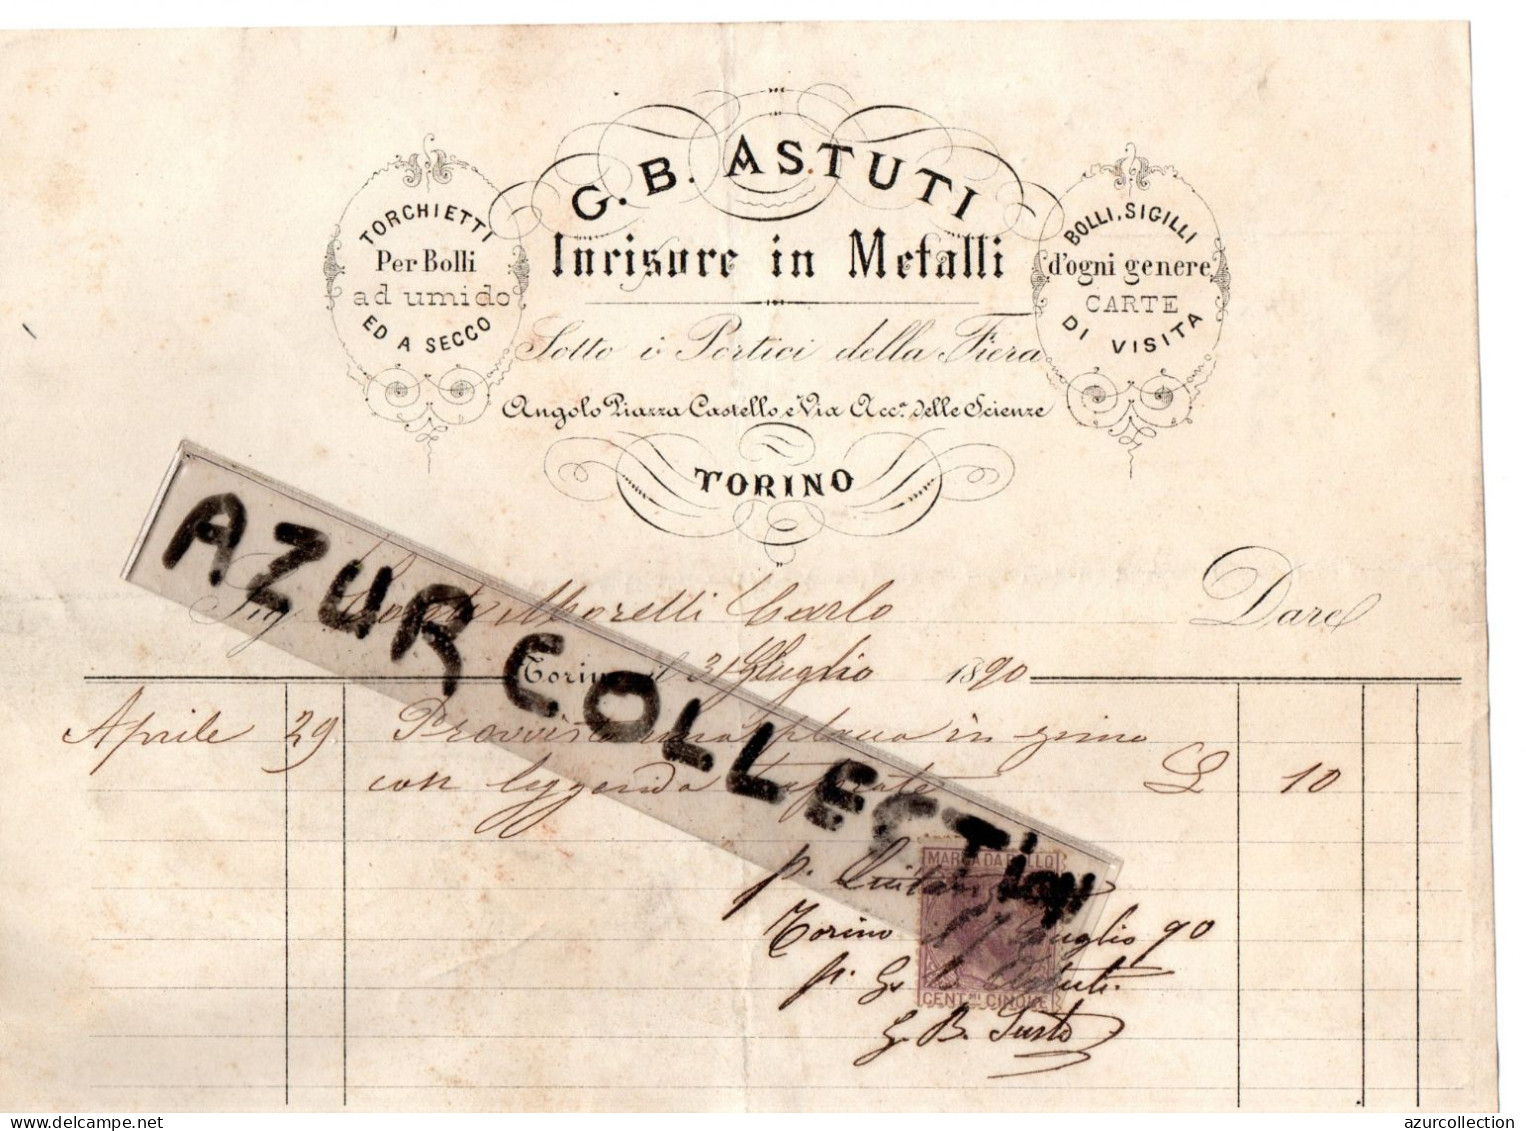 G. B. ASTUTI
Incisore in Metalli
Sotto i Portici della Fiera
Angolo Piazza Castello e Via Acc.ª delle Scienze
TORINO
TORCHIETTI
Per Bolli
ad umido
ED A SECCO
BOLLI, SIGILLI
d'ogni genere
CARTE
DI VISITA
AZUR COLLECTION
Sig. Morelli Carlo Dare
Torino il 31 Luglio 1890
Aprile 29 Provvista una placca in zinco
con leggenda £ 10
MARCA DA BOLLO
p. Quitanza
Torino il Luglio 90
p. G. B. Astuti
CENT.MI CINQUE
G. B. Justo
azurcollection